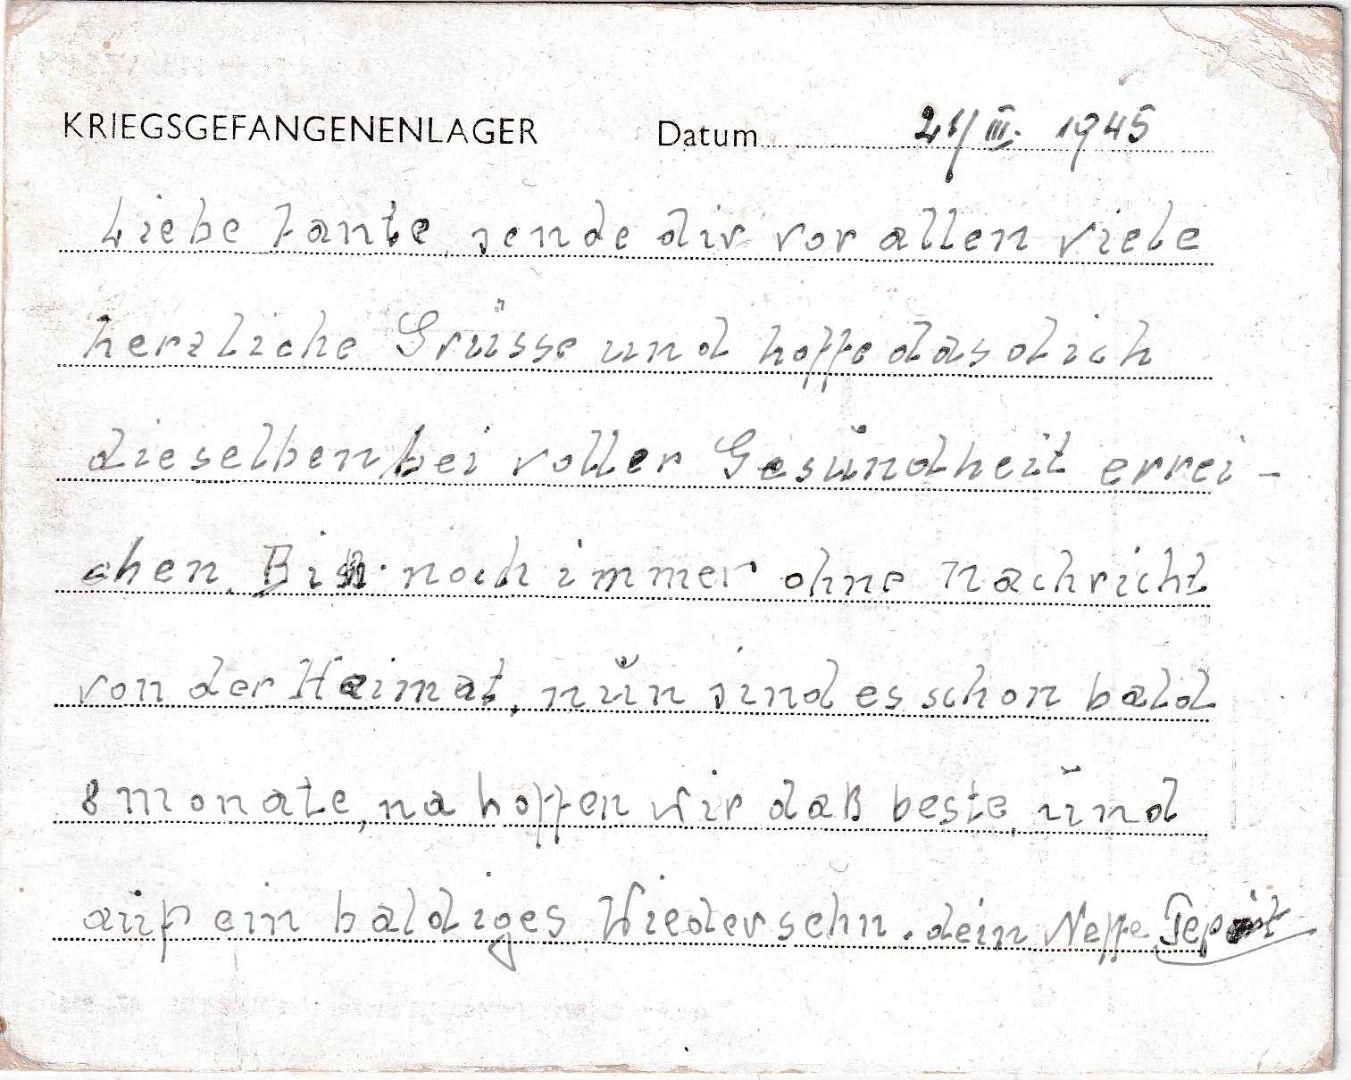 KRIEGSGEFANGENENLAGER Datum 21/III. 1945
Liebe Tante, sende dir vor allen viele
herzliche Grüsse und hoffe das dich
dieselben bei voller Gesundheit errei-
chen. Bin noch immer ohne Nachricht
von der Heimat, nun sind es schon bald
8 monate, na hoffen wir daß beste, und
auf ein baldiges Wiedersehn. dein Neffe